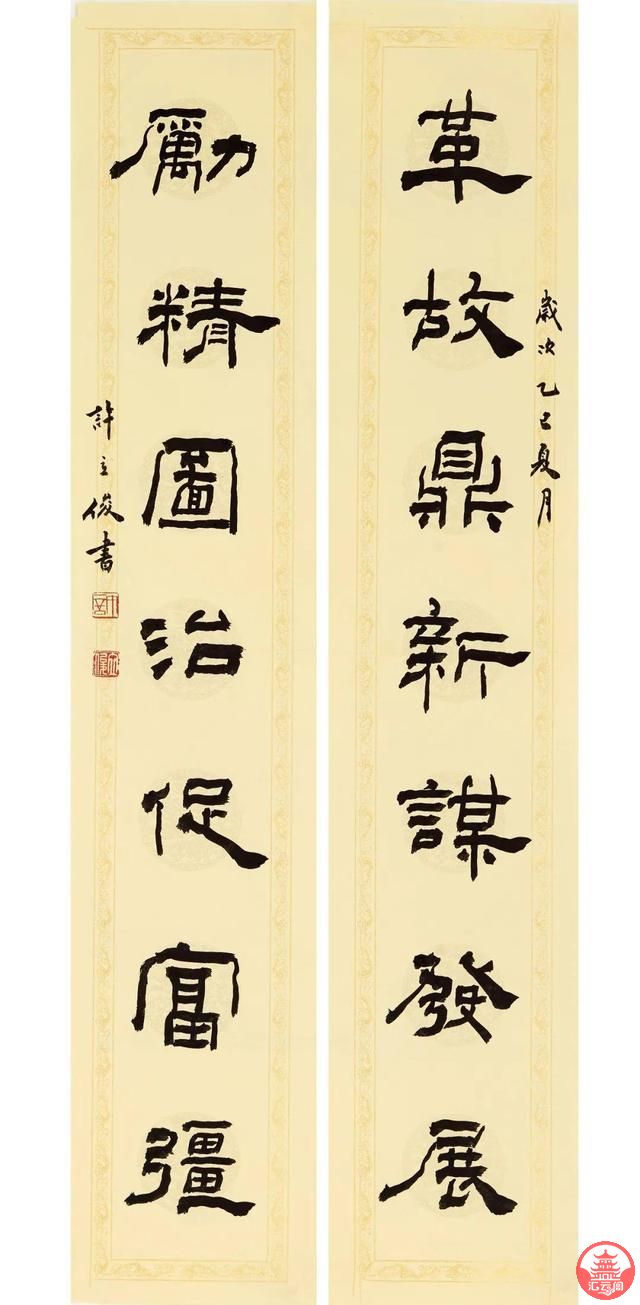 革故鼎新謀發展
歲次乙巳夏月
勵精圖治促富彊
許立俊書
汇云阁